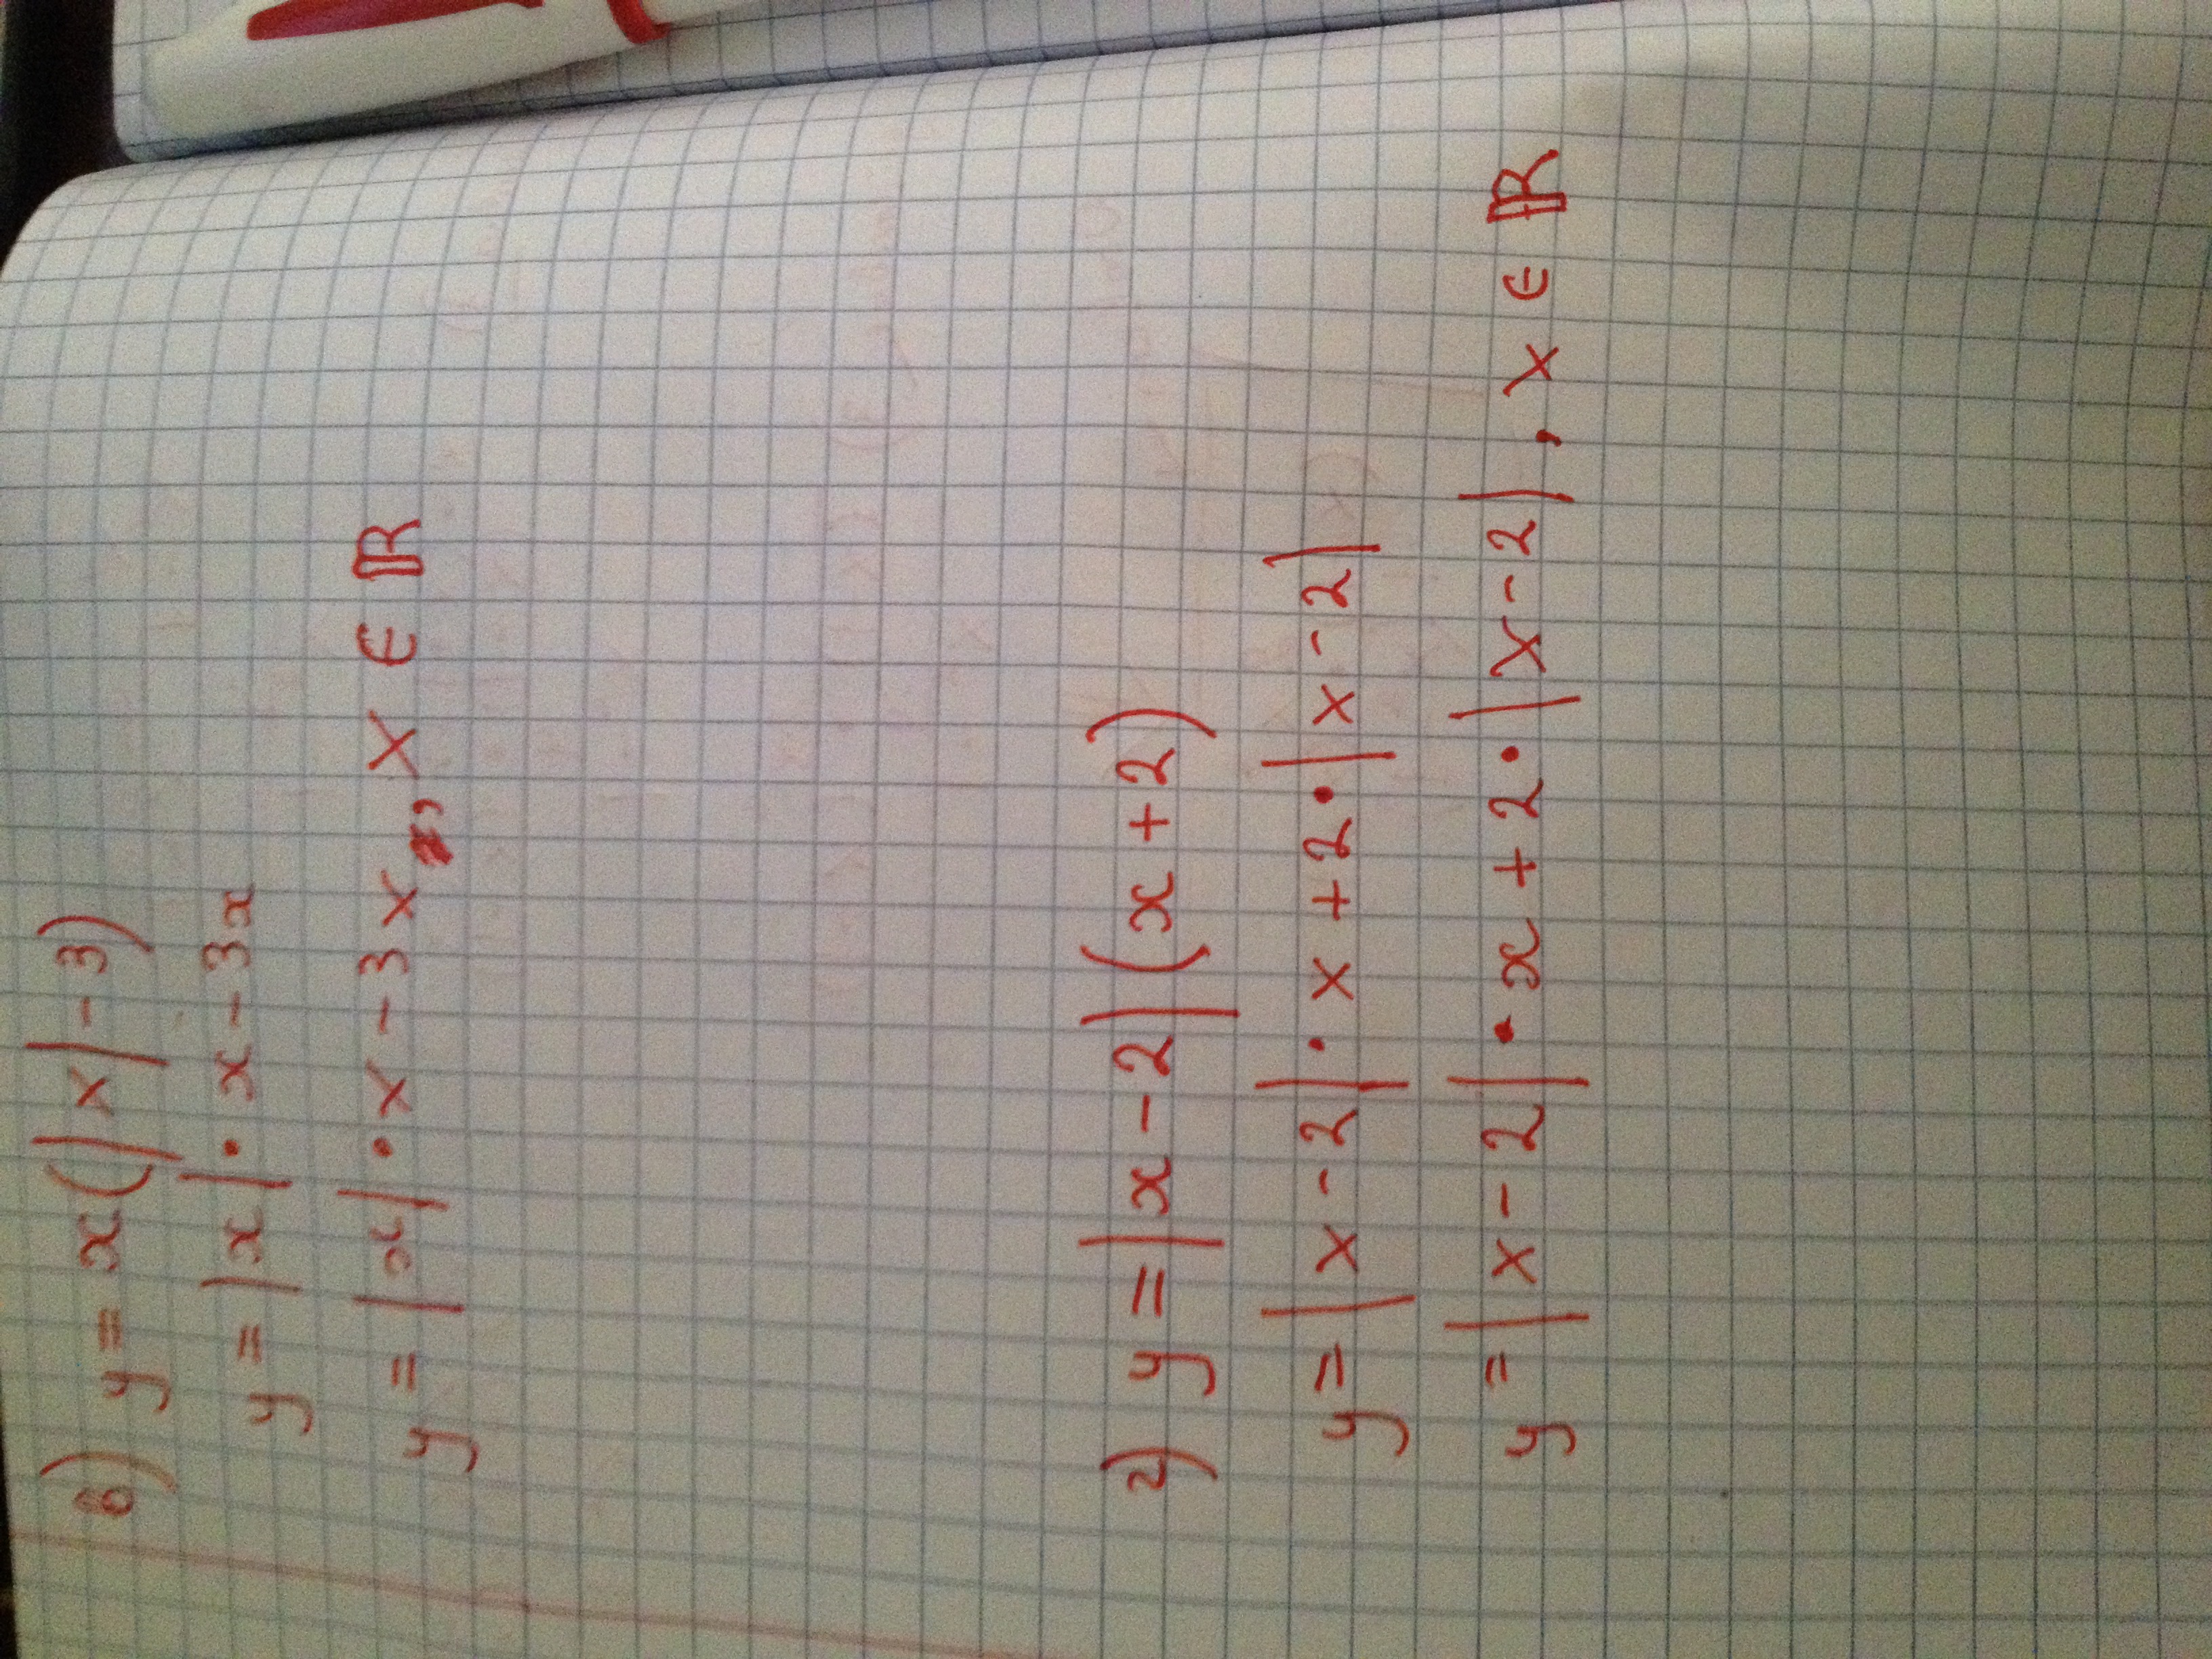 б) y = x(|x| - 3)
y = |x| • x - 3x
y = |x| • x - 3x, x ∈ ℝ
2) y = |x - 2|(x + 2)
y = |x - 2| • x + 2 • |x - 2|
y = |x - 2| • x + 2 • |x - 2|, x ∈ ℝ